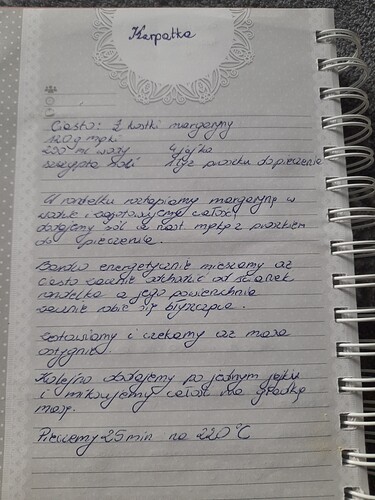 Karpatka
Ciasto: 1 kostki margaryny
120 g mąki
250 ml wody 4 jajka
szczypta soli 1 łyż proszku do pieczenia
W rondelku roztapiamy margarynę w
wodzie i zagotowujemy całość
dodajemy sól a nast mąkę z proszkiem
do pieczenia.
Bardzo energetycznie mieszamy aż
ciasto zacznie odchodzić od ścianek
rondelka a jego powierzchnia
zacznie robić się błyszcząca.
zostawiamy i czekamy aż masa
ostygnie.
Kolejno dodajemy po jednym jajku
i miksujemy całość na gładką
masę.
Pieczemy 25 min na 220°C